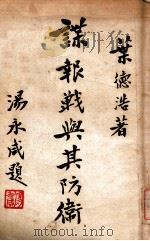 葉德浩著
諜報戰與其防衛
湯永咸題